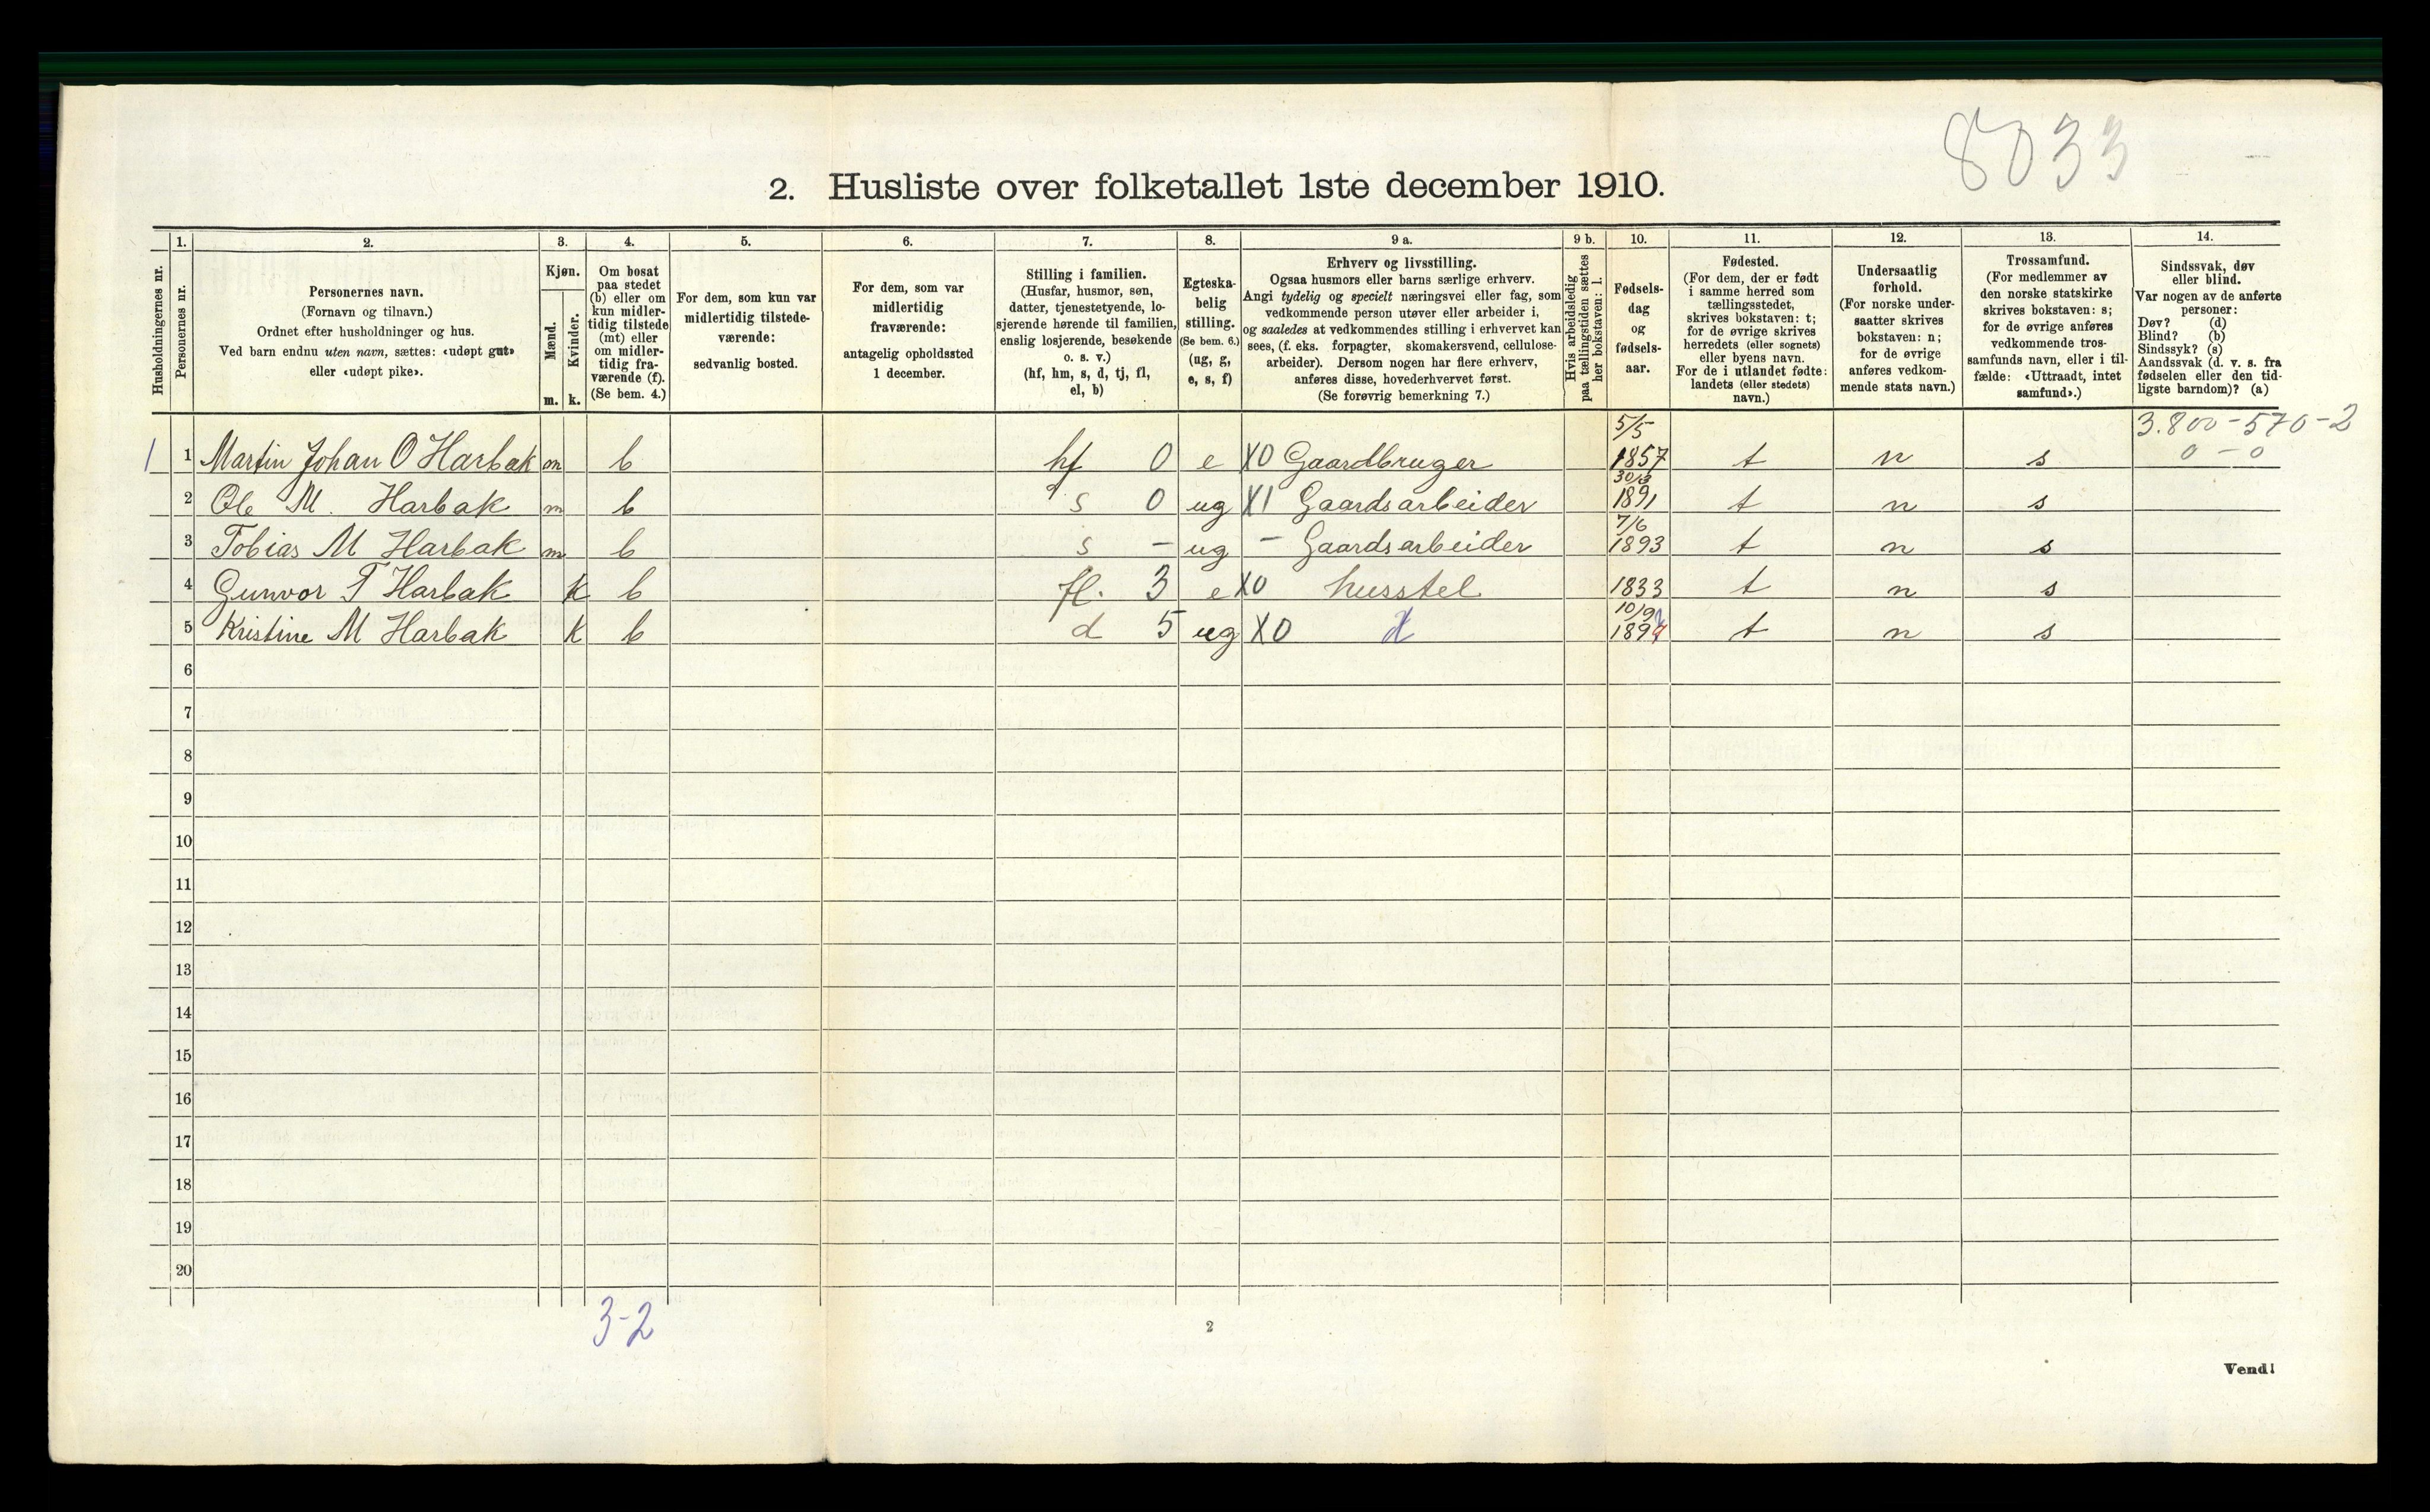 8033
2. Husliste over folketallet 1ste december 1910.
Husholdningernes nr.
1.
Personernes nr.
2.
Personernes navn.
(Fornavn og tilnavn.)
Ordnet efter husholdninger og hus.
Ved barn endnu uten navn, sættes: «udøpt gut»
eller «udøpt pike».
3.
Kjøn.
Mænd.
Kvinder.
m. k.
4.
Om bosat
paa stedet
(b) eller om
kun midler-
tidig tilstede
(mt) eller
om midler-
tidig fra-
værende (f).
(Se bem. 4.)
5.
For dem, som kun var
midlertidig tilstede-
værende:
sedvanlig bosted.
6.
For dem, som var
midlertidig
fraværende:
antagelig opholdssted
1 december.
7.
Stilling i familien.
(Husfar, husmor, søn,
datter, tjenestetyende, lo-
sjerende hørende til familien,
enslig losjerende, besøkende
o. s. v.)
(hf, hm, s, d, tj, fl,
el, b)
8.
Egteska-
belig
stilling.
(Se bem. 6.)
(ug, g,
e, s, f)
9 a.
Erhverv og livsstilling.
Ogsaa husmors eller barns særlige erhverv.
Angi tydelig og specielt næringsvei eller fag, som
vedkommende person utøver eller arbeider i,
og saaledes at vedkommendes stilling i erhvervet kan
sees, (f. eks. forpagter, skomakersvend, cellulose-
arbeider). Dersom nogen har flere erhverv,
anføres disse, hovederhvervet først.
(Se forøvrig bemerkning 7.)
9 b.
Hvis arbeidsledig
paa tællingstiden sættes
her bokstaven: l.
10.
Fødsels-
dag
og
fødsels-
aar.
11.
Fødested.
(For dem, der er født
i samme herred som
tællingsstedet,
skrives bokstaven: t;
for de øvrige skrives
herredets (eller sognets)
eller byens navn.
For de i utlandet fødte:
landets (eller stedets)
navn.)
12.
Undersaatlig
forhold.
(For norske under-
saatter skrives
bokstaven: n;
for de øvrige
anføres vedkom-
mende stats navn.)
13.
Trossamfund.
(For medlemmer av
den norske statskirke
skrives bokstaven: s;
for de øvrige anføres
vedkommende tros-
samfunds navn, eller i til-
fælde: «Uttraadt, intet
samfund».)
14.
Sindssvak, døv
eller blind.
Var nogen av de anførte
personer:
Døv? (d)
Blind? (b)
Sindssyk? (s)
Aandssvak (d. v. s. fra
fødselen eller den tid-
ligste barndom)? (a)
5/5 3.800-570-2
1 1 Martin Johan O Harbak m b hf 0 e X0 Gaardbruger 1857 t n s 0-0
30/3
2 Ole M. Harbak m b s 0 ug X1 Gaardsarbeider 1891 t n s
7/6
3 Tobias M Harbak m b s - ug - Gaardsarbeider 1893 t n s
4 Gunvor T Harbak k b fl. 3 e X0 husstel 1833 t n s
10/9
5 Kristine M Harbak k b d 5 ug X0 t n s
6
7
8
9
10
11
12
13
14
15
16
17
18
19
20
3-2
2
Vend!